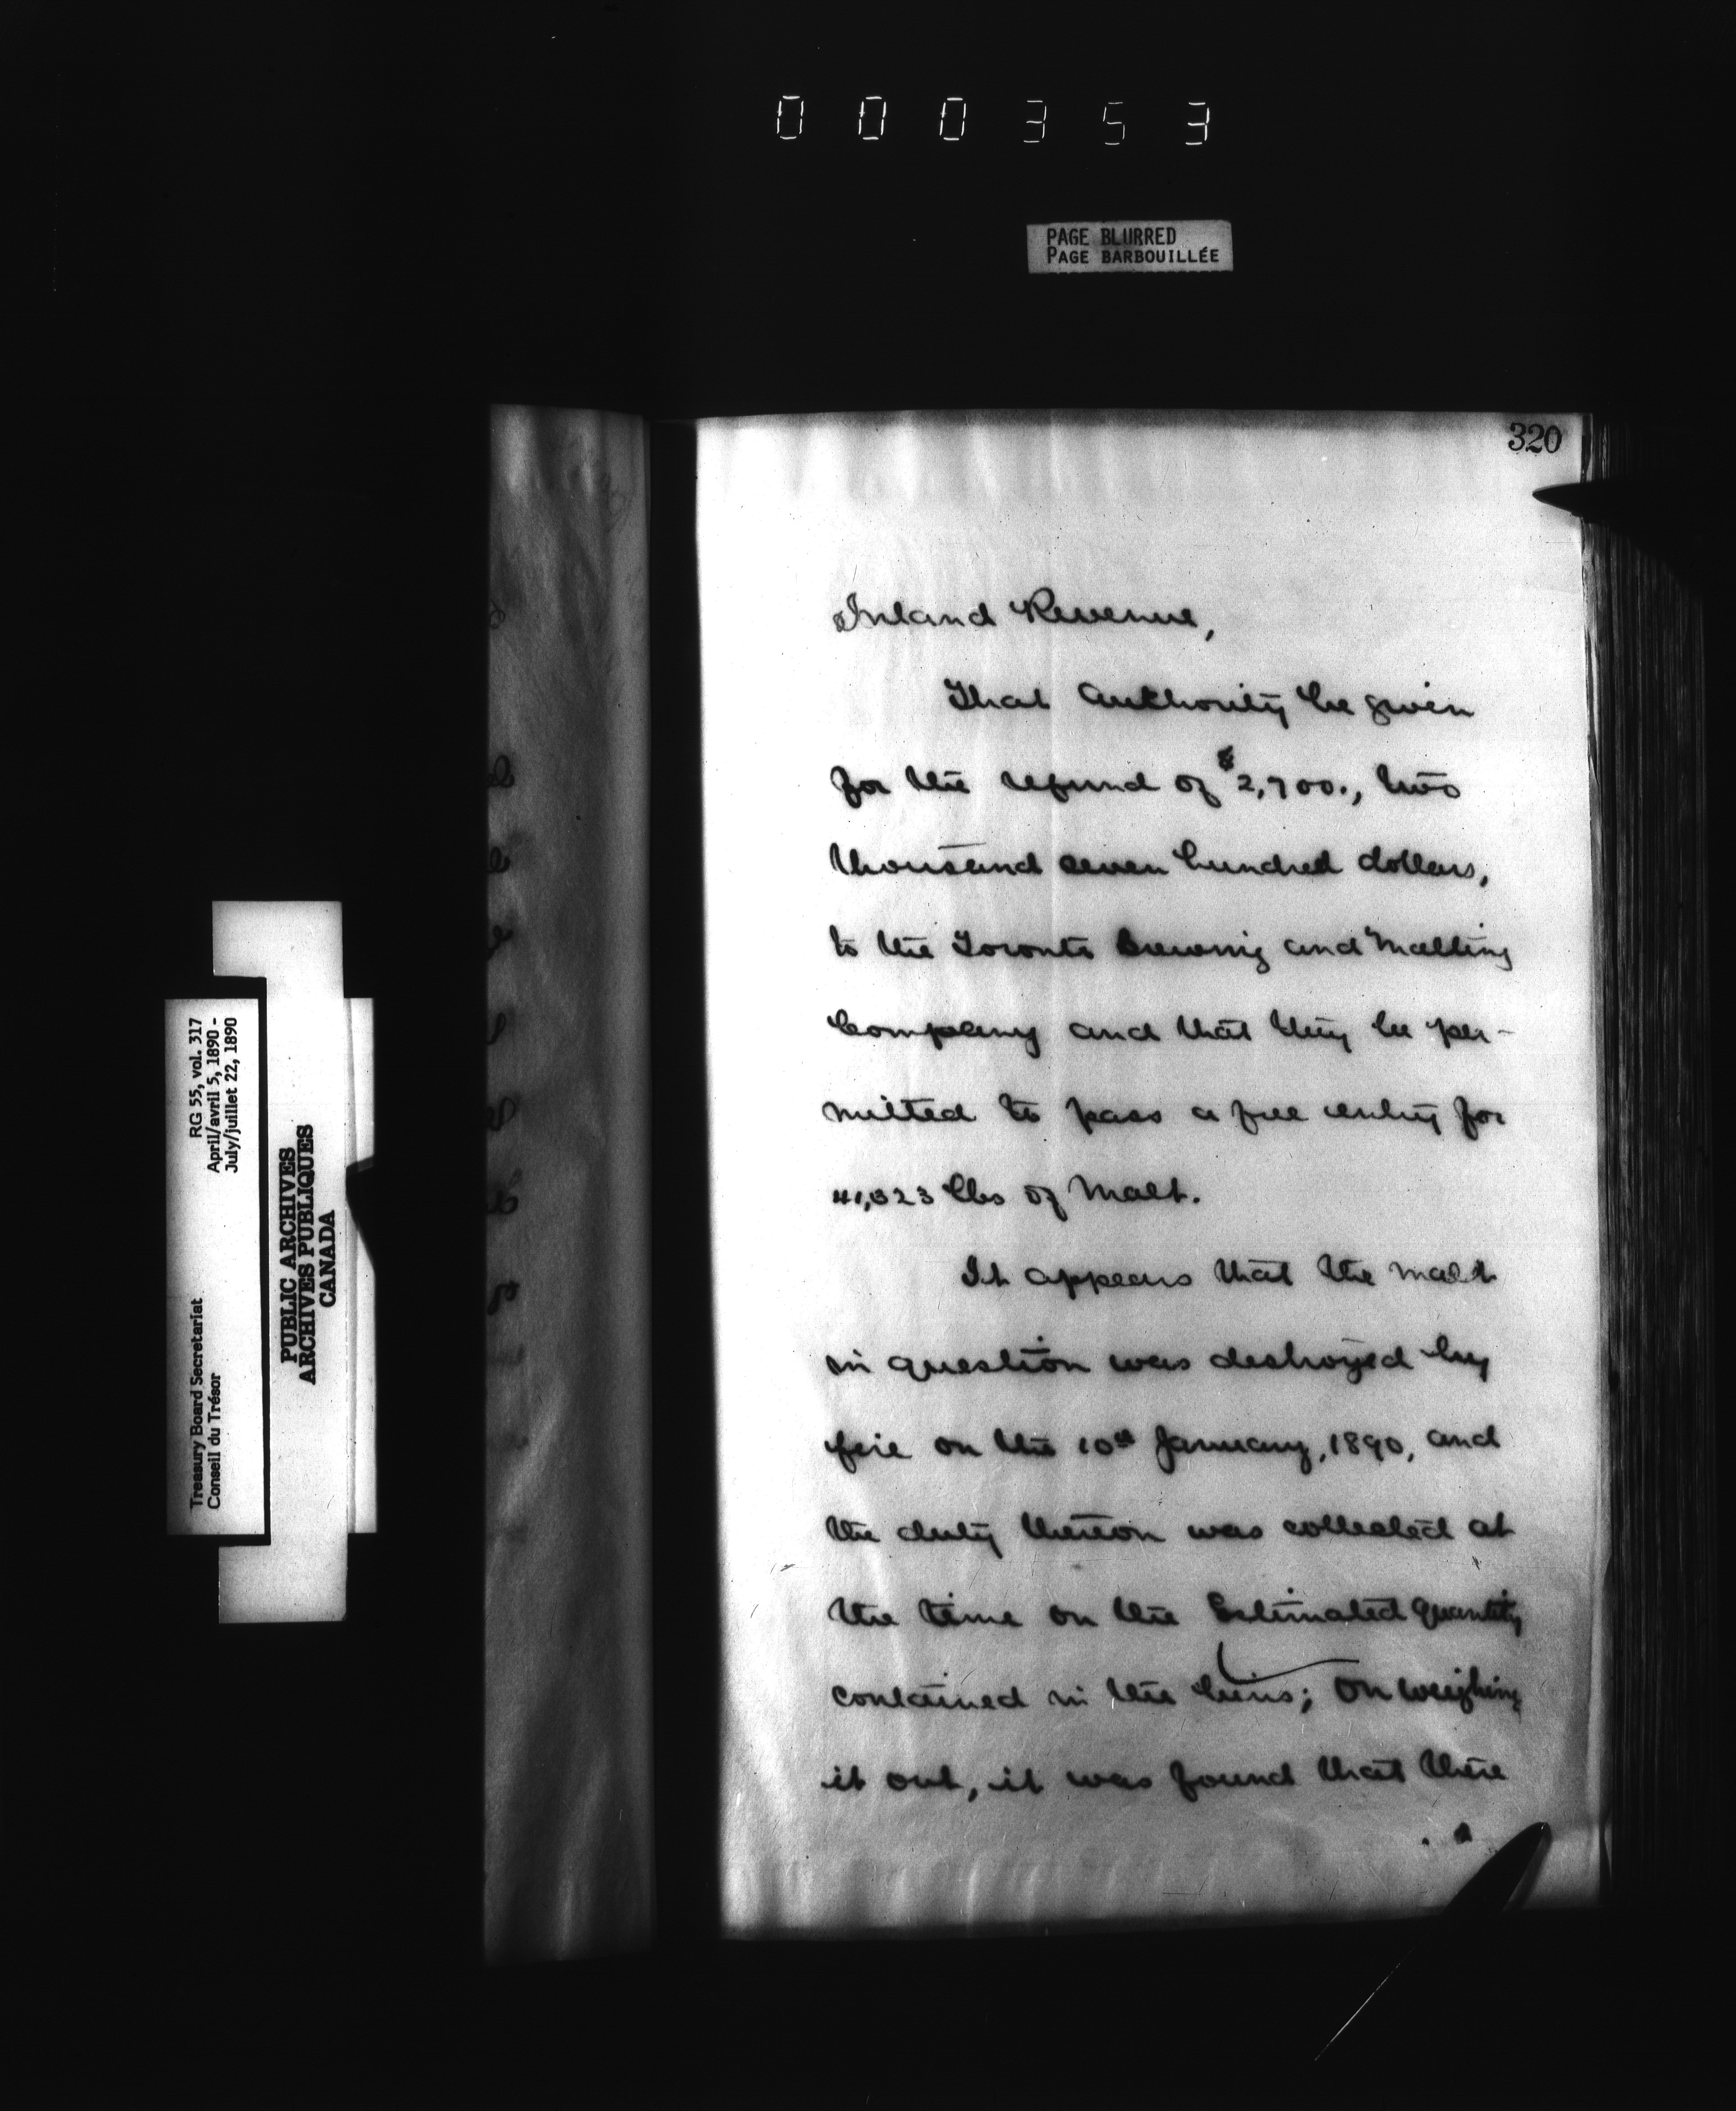 000353
PAGE BLURRED
PAGE BARBOUILLÉE
320
Inland Revenue,
That Authority be given
for the refund of $2,700., two
thousand seven hundred dollars,
to the Toronto Brewing and Malting
Company and that they be per-
mitted to pass a free entry for
41,323 lbs of Malt.
It appears that the malt
in question was destroyed by
fire on the 10th January, 1890, and
the duty thereon was collected at
the time on the Estimated quantity
contained in the bins; On weighing
it out, it was found that there
Treasury Board Secretariat
Conseil du Trésor
RG 55, vol. 317
April/avril 5, 1890 -
July/juillet 22, 1890
PUBLIC ARCHIVES
ARCHIVES PUBLIQUES
CANADA